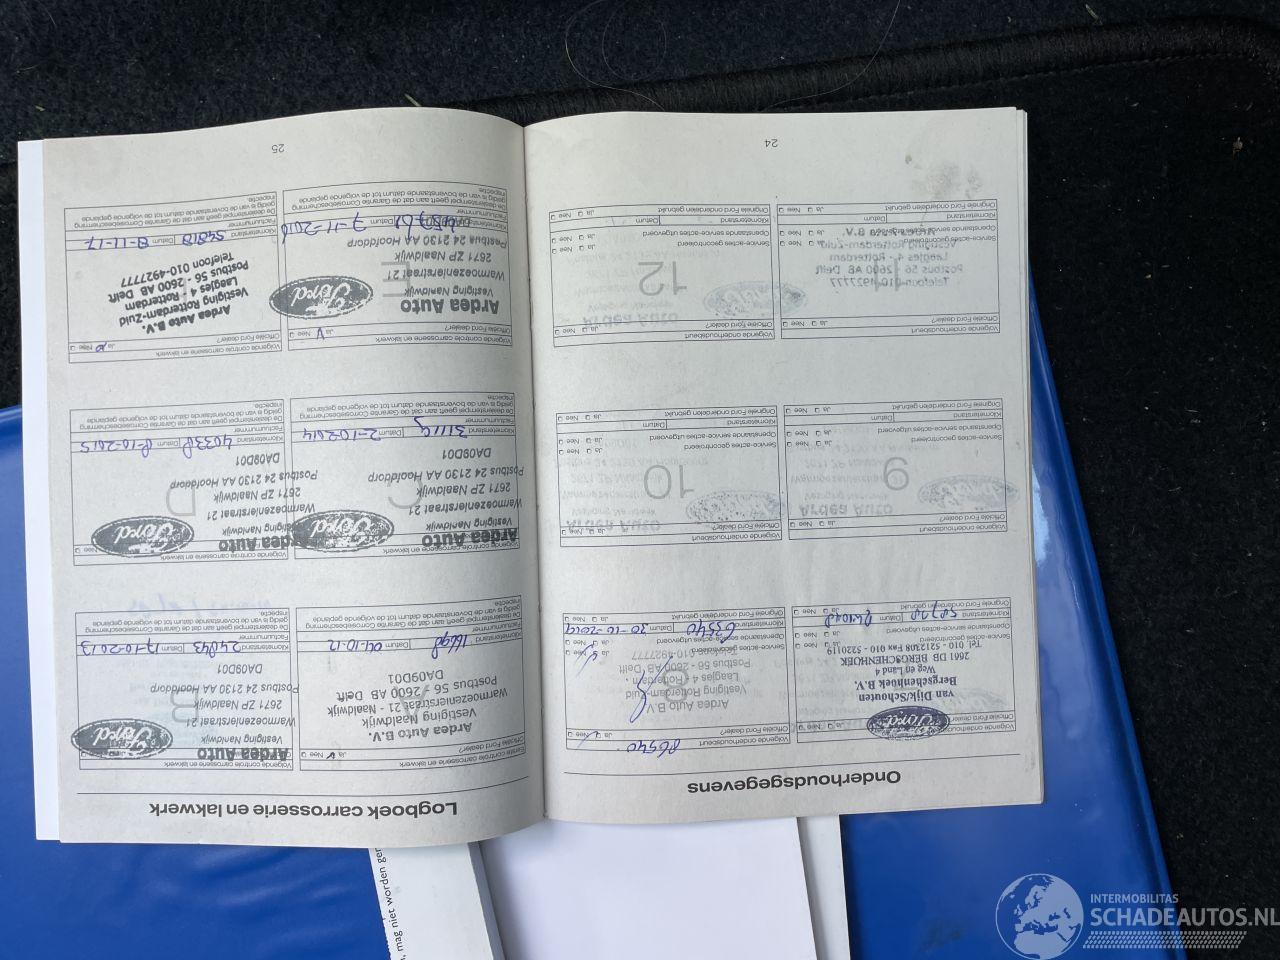 Onderhoudsgegevens
Volgende onderhoudsbeurt
Officiële Ford dealer?
Ja Nee
Ford
van Dijk/Schouten
Bergschenhoek B.V.
Weg en Land 4
2661 DB BERGSCHENHOEK
Tel. 010 - 5212308 Fax 010 - 5220119
Service-acties gecontroleerd
Ja Nee
Openstaande service-acties uitgevoerd
Ja Nee
Originele Ford onderdelen gebruikt
Ja Nee
Kilometerstand
Datum
Volgende onderhoudsbeurt
86540
Officiële Ford dealer?
Ja Nee
8
Ardea Auto B.V.
Vestiging Rotterdam-Zuid
Laagjes 4 - Rotterdam
Postbus 56 - 2600 AB Delft
Telefoon 010-4927777
Service-acties gecontroleerd
Ja Nee
Openstaande service-acties uitgevoerd
Ja Nee
Originele Ford onderdelen gebruikt
Ja Nee
Kilometerstand
63540
Datum
30-10-2019
Volgende onderhoudsbeurt
Officiële Ford dealer?
Ja Nee
9
Service-acties gecontroleerd
Ja Nee
Openstaande service-acties uitgevoerd
Ja Nee
Originele Ford onderdelen gebruikt
Ja Nee
Kilometerstand
Datum
Volgende onderhoudsbeurt
Officiële Ford dealer?
Ja Nee
10
Service-acties gecontroleerd
Ja Nee
Openstaande service-acties uitgevoerd
Ja Nee
Originele Ford onderdelen gebruikt
Ja Nee
Kilometerstand
Datum
Volgende onderhoudsbeurt
Officiële Ford dealer?
Ja Nee
11
Telefoon 010-4927777
Postbus 56 - 2600 AB Delft
Laagjes 4 - Rotterdam
Vestiging Rotterdam-Zuid
Ardea Auto B.V.
Service-acties gecontroleerd
Ja Nee
Openstaande service-acties uitgevoerd
Ja Nee
Originele Ford onderdelen gebruikt
Ja Nee
Kilometerstand
Datum
Volgende onderhoudsbeurt
Officiële Ford dealer?
Ja Nee
12
Service-acties gecontroleerd
Ja Nee
Openstaande service-acties uitgevoerd
Ja Nee
Originele Ford onderdelen gebruikt
Ja Nee
Kilometerstand
Datum
24
Logboek carrosserie en lakwerk
Eerste controle carrosserie en lakwerk
Officiële Ford dealer?
Ja Nee
A
Ardea Auto B.V.
Vestiging Naaldwijk
Warmoezenierstraat 21 - Naaldwijk
Postbus 56 - 2600 AB Delft
DA09D01
Kilometerstand
Datum
04-10-12
Factuurnummer
De dealerstempel geeft aan dat de Garantie Corrosiebescherming
geldig is van de bovenstaande datum tot de volgende geplande
inspectie.
Volgende controle carrosserie en lakwerk
B
Ford
Ardea Auto
Vestiging Naaldwijk
Warmoezenierstraat 21
2671 ZP Naaldwijk
Postbus 24 2130 AA Hoofddorp
DA09D01
Kilometerstand
24843
Datum
17-10-2013
Factuurnummer
De dealerstempel geeft aan dat de Garantie Corrosiebescherming
geldig is van de bovenstaande datum tot de volgende geplande
inspectie.
Volgende controle carrosserie en lakwerk
C
Ford
Ardea Auto
Vestiging Naaldwijk
Warmoezenierstraat 21
2671 ZP Naaldwijk
Postbus 24 2130 AA Hoofddorp
DA09D01
Kilometerstand
31119
Datum
2-10-2014
Factuurnummer
De dealerstempel geeft aan dat de Garantie Corrosiebescherming
geldig is van de bovenstaande datum tot de volgende geplande
Volgende controle carrosserie en lakwerk
Nee
D
Ford
Ardea Auto
Vestiging Naaldwijk
Warmoezenierstraat 21
2671 ZP Naaldwijk
Postbus 24 2130 AA Hoofddorp
DA09D01
Kilometerstand
Datum
8-10-2015
Factuurnummer
De dealerstempel geeft aan dat de Garantie Corrosiebescherming
geldig is van de bovenstaande datum tot de volgende geplande
Volgende controle carrosserie en lakwerk
Officiële Ford dealer?
Ja Nee
E
Ford
Ardea Auto
Vestiging Naaldwijk
Warmoezenierstraat 21
2671 ZP Naaldwijk
Postbus 24 2130 AA Hoofddorp
Kilometerstand
Datum
7-11-2016
Factuurnummer
De dealerstempel geeft aan dat de Garantie Corrosiebescherming
geldig is van de bovenstaande datum tot de volgende geplande
inspectie.
Volgende controle carrosserie en lakwerk
Officiële Ford dealer?
Ja Nee
Ardea Auto B.V.
Vestiging Rotterdam-Zuid
Laagjes 4 - Rotterdam
Postbus 56 - 2600 AB Delft
Telefoon 010-4927777
Kilometerstand
Datum
8-11-17
Factuurnummer
De dealerstempel geeft aan dat de Garantie Corrosiebescherming
geldig is van de bovenstaande datum tot de volgende geplande
inspectie.
25
, mag niet worden
INTERMOBILITAS
SCHADEAUTOS.NL